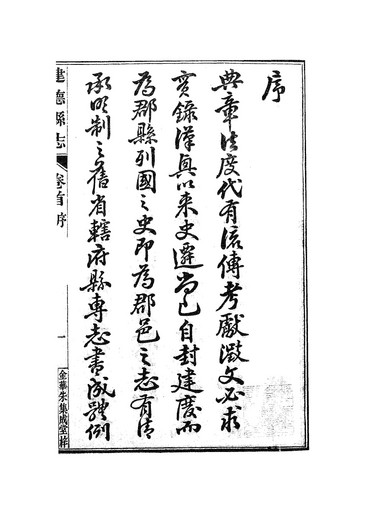 序
典章法度代有流傳考獻徵文必求
實錄漢興以來史遷尚已自封建廢而
為郡縣列國之史即為郡邑之志有清
承明制之舊省轄府縣專志書成體例
建德縣志 卷首 序
一
金華朱集成堂梓